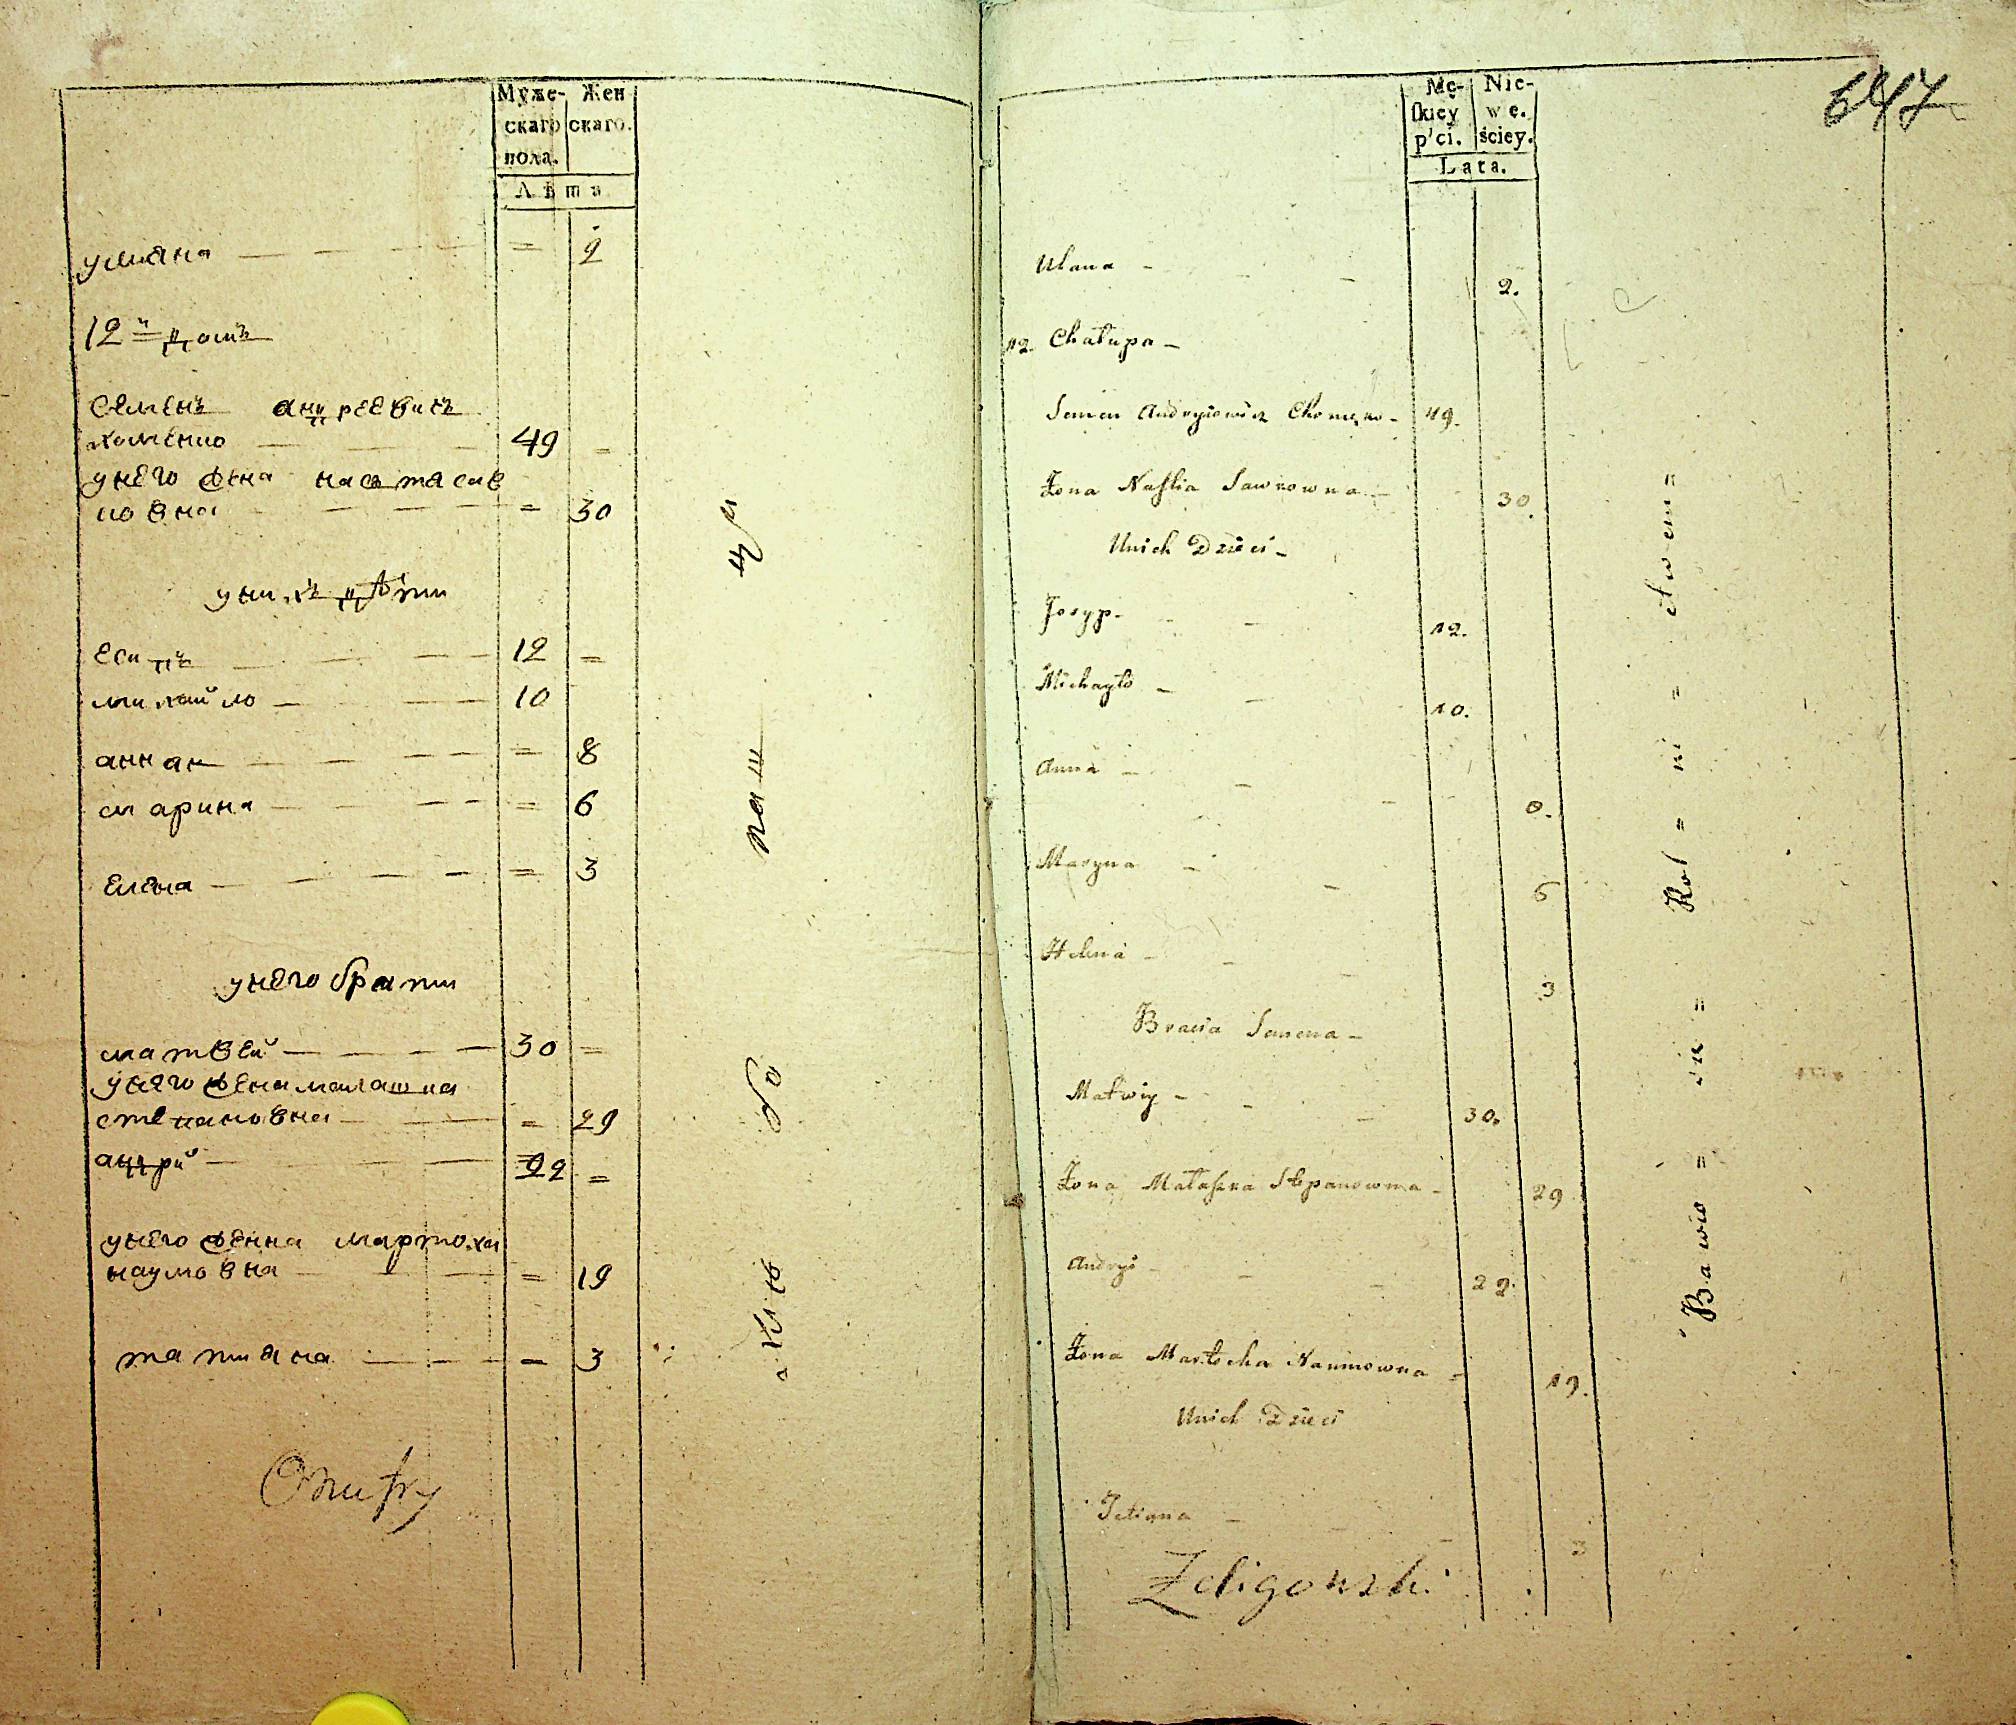 Муже- Жен
скаго скаго.
пола.
Лѣта
улиана — — — — = 2
12й домъ
Семенъ андреевичъ
хоменко — — — 49 =
унего жена настасяв
ловна — — — = 30
унихъ дѣти
Есипъ — — — 12 =
михайло — — — 10
анна — — — = 8
марина — — — = 6
Елена — — — = 3
унего брати
матвей — — — 30 =
унего жена малашка
степановна — — = 29
андрй — — — 22 =
унего женна мартоха
наумовна — — — = 19
татиана — — — = 3
Onufry
Mę- Nie-
ſkiey we.
p'ci. ściey.
Lata.
647
Ulana - - - 2.
12. Chałupa -
Semen Andryiowicz Chomęko - 49.
Żona Naſtia Sawkowna - 30.
Unich Dzieci -
Josyp - - - 12.
Michayło - - 10.
Anna - - -
Maryna - - 6
Helena - - - 3
Bracia Semena -
Matwiy - - - 30.
Żona Małaſzka Stepanowna - 29
Andryi - - - 22.
Żona Martocha Naumowna - 19.
Unich Dzieci
Tetiana - - - 3
Żeligowski
Bawio = sie = Rol = ni = ctwem =